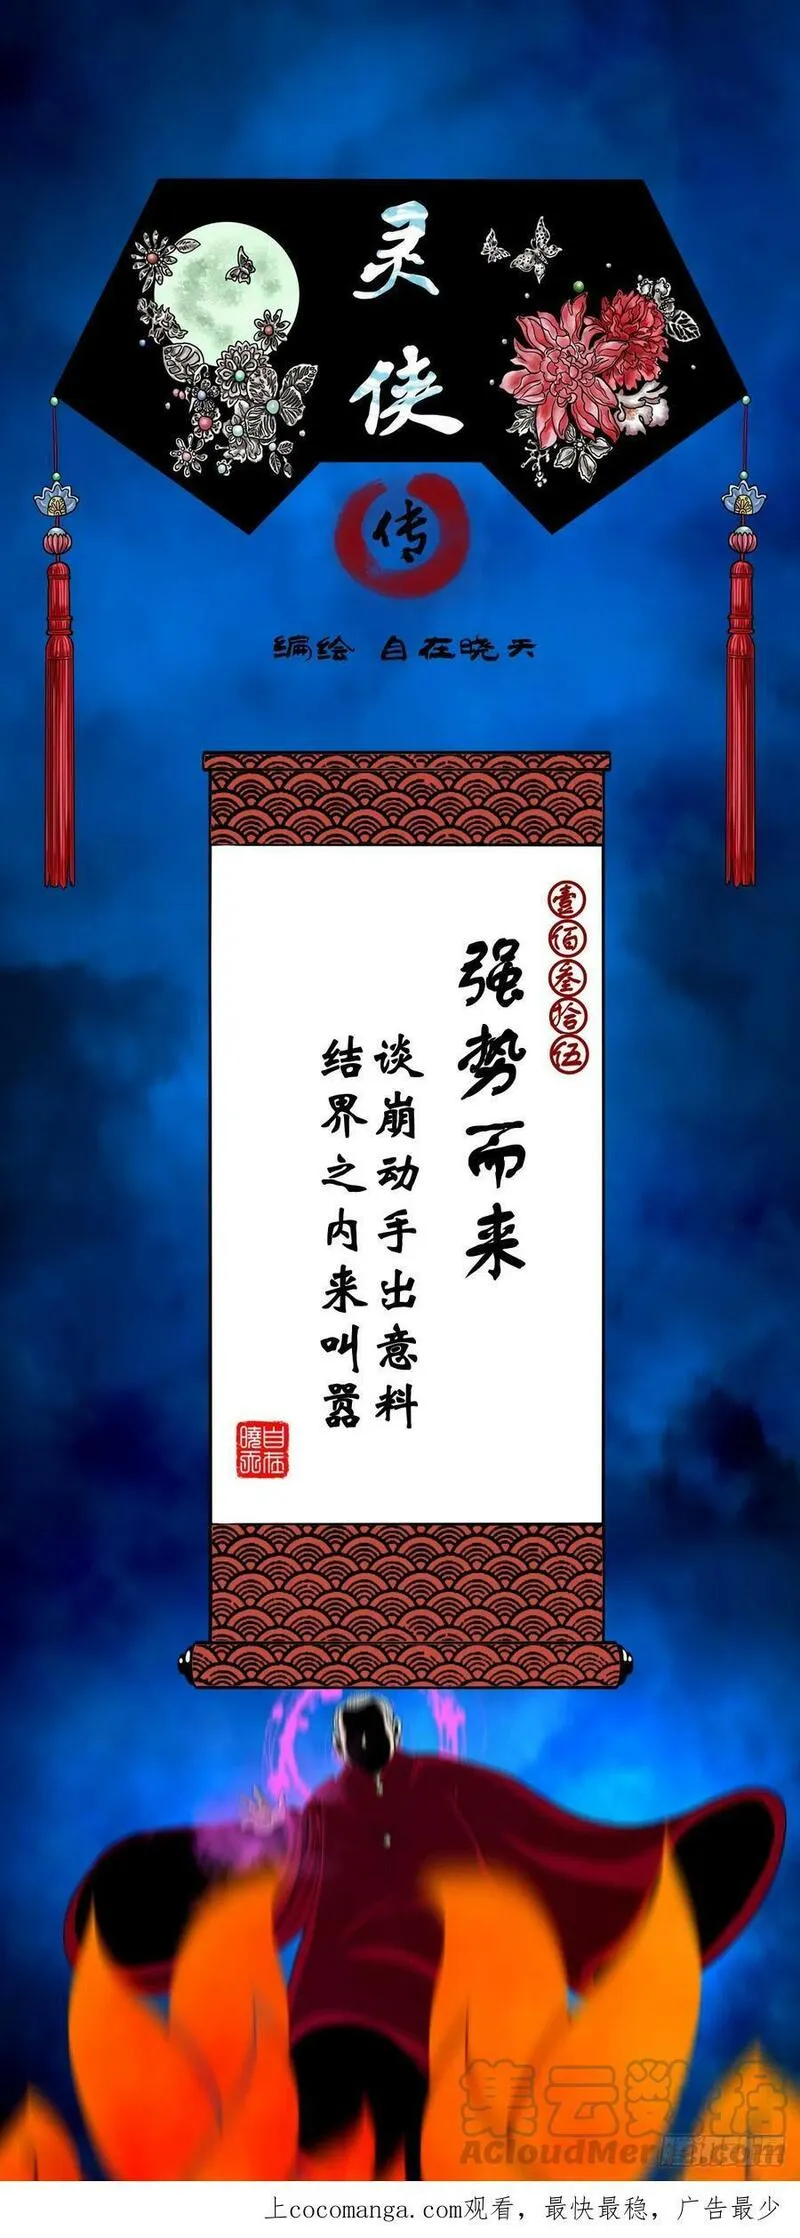 灵侠
传
编绘 自在晓天
壹佰叁拾伍
强势而来
谈崩动手出意料
结界之内来叫嚣
自在曉天
集云数据
ACloudMerge.com
上cocomanga.com观看，最快最稳，广告最少